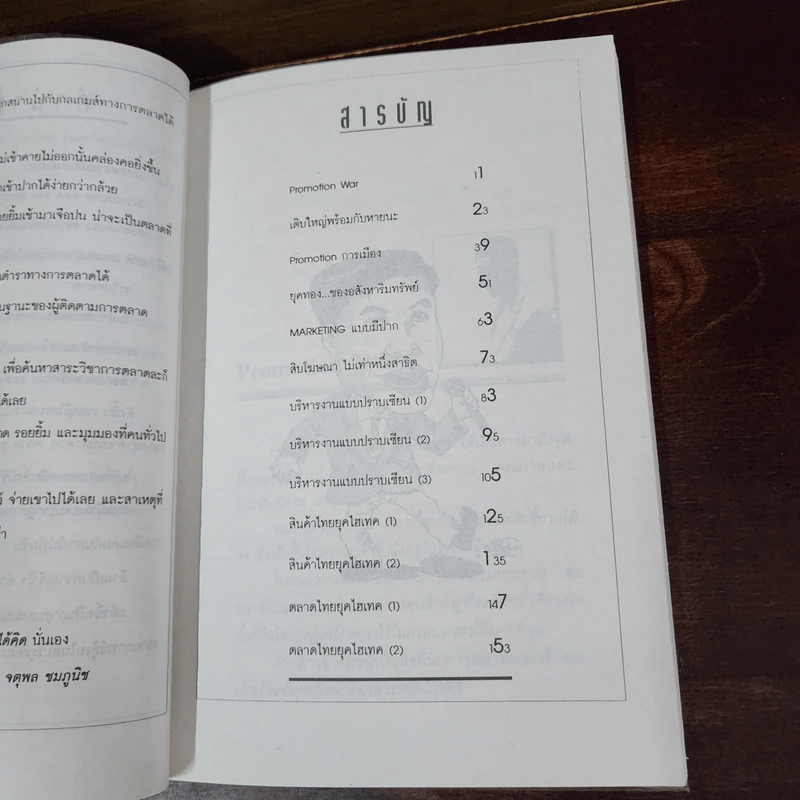 กสนานไปกับกลเกมส์ทางการตลาดได้
ม่เข้าคายไม่ออกนั้นคล่องคอยิ่งขึ้น
เข้าปากได้ง่ายกว่ากล้วย
ยยิ้มเข้ามาเจือปน น่าจะเป็นตลาดที่
นตำราทางการตลาดได้
นฐานะของผู้ติดตามการตลาด
เพื่อค้นหาสาระวิชาการตลาดละก็
ด้เลย
าด รอยยิ้ม และมุมมองที่คนทั่วไป
จ่ายเขาไปได้เลย และสาเหตุที่
ได้คิด นั่นเอง
จตุพล ชมภูนิช
สารบัญ
Promotion War 11
เติบใหญ่พร้อมกับหายนะ 23
Promotion การเมือง 39
ยุคทอง...ของอสังหาริมทรัพย์ 51
MARKETING แบบมีปาก 63
สิบโฆษณา ไม่เท่าหนึ่งสาธิต 73
บริหารงานแบบปราบเซียน (1) 83
บริหารงานแบบปราบเซียน (2) 95
บริหารงานแบบปราบเซียน (3) 105
สินค้าไทยยุคไฮเทค (1) 125
สินค้าไทยยุคไฮเทค (2) 135
ตลาดไทยยุคไฮเทค (1) 147
ตลาดไทยยุคไฮเทค (2) 153